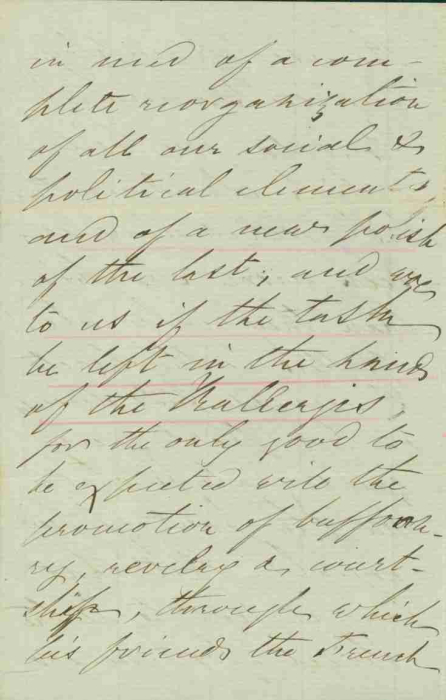 in need of a com-
plete reorganization
of all our social &
political elements,
and of a new polish
of the last; and woe
to us if the task
be left in the hands
of the Kallergis,
for the only good to
be expected will the
promotion of buffoone-
ry, revelry & court-
ship, through which
his friends the French